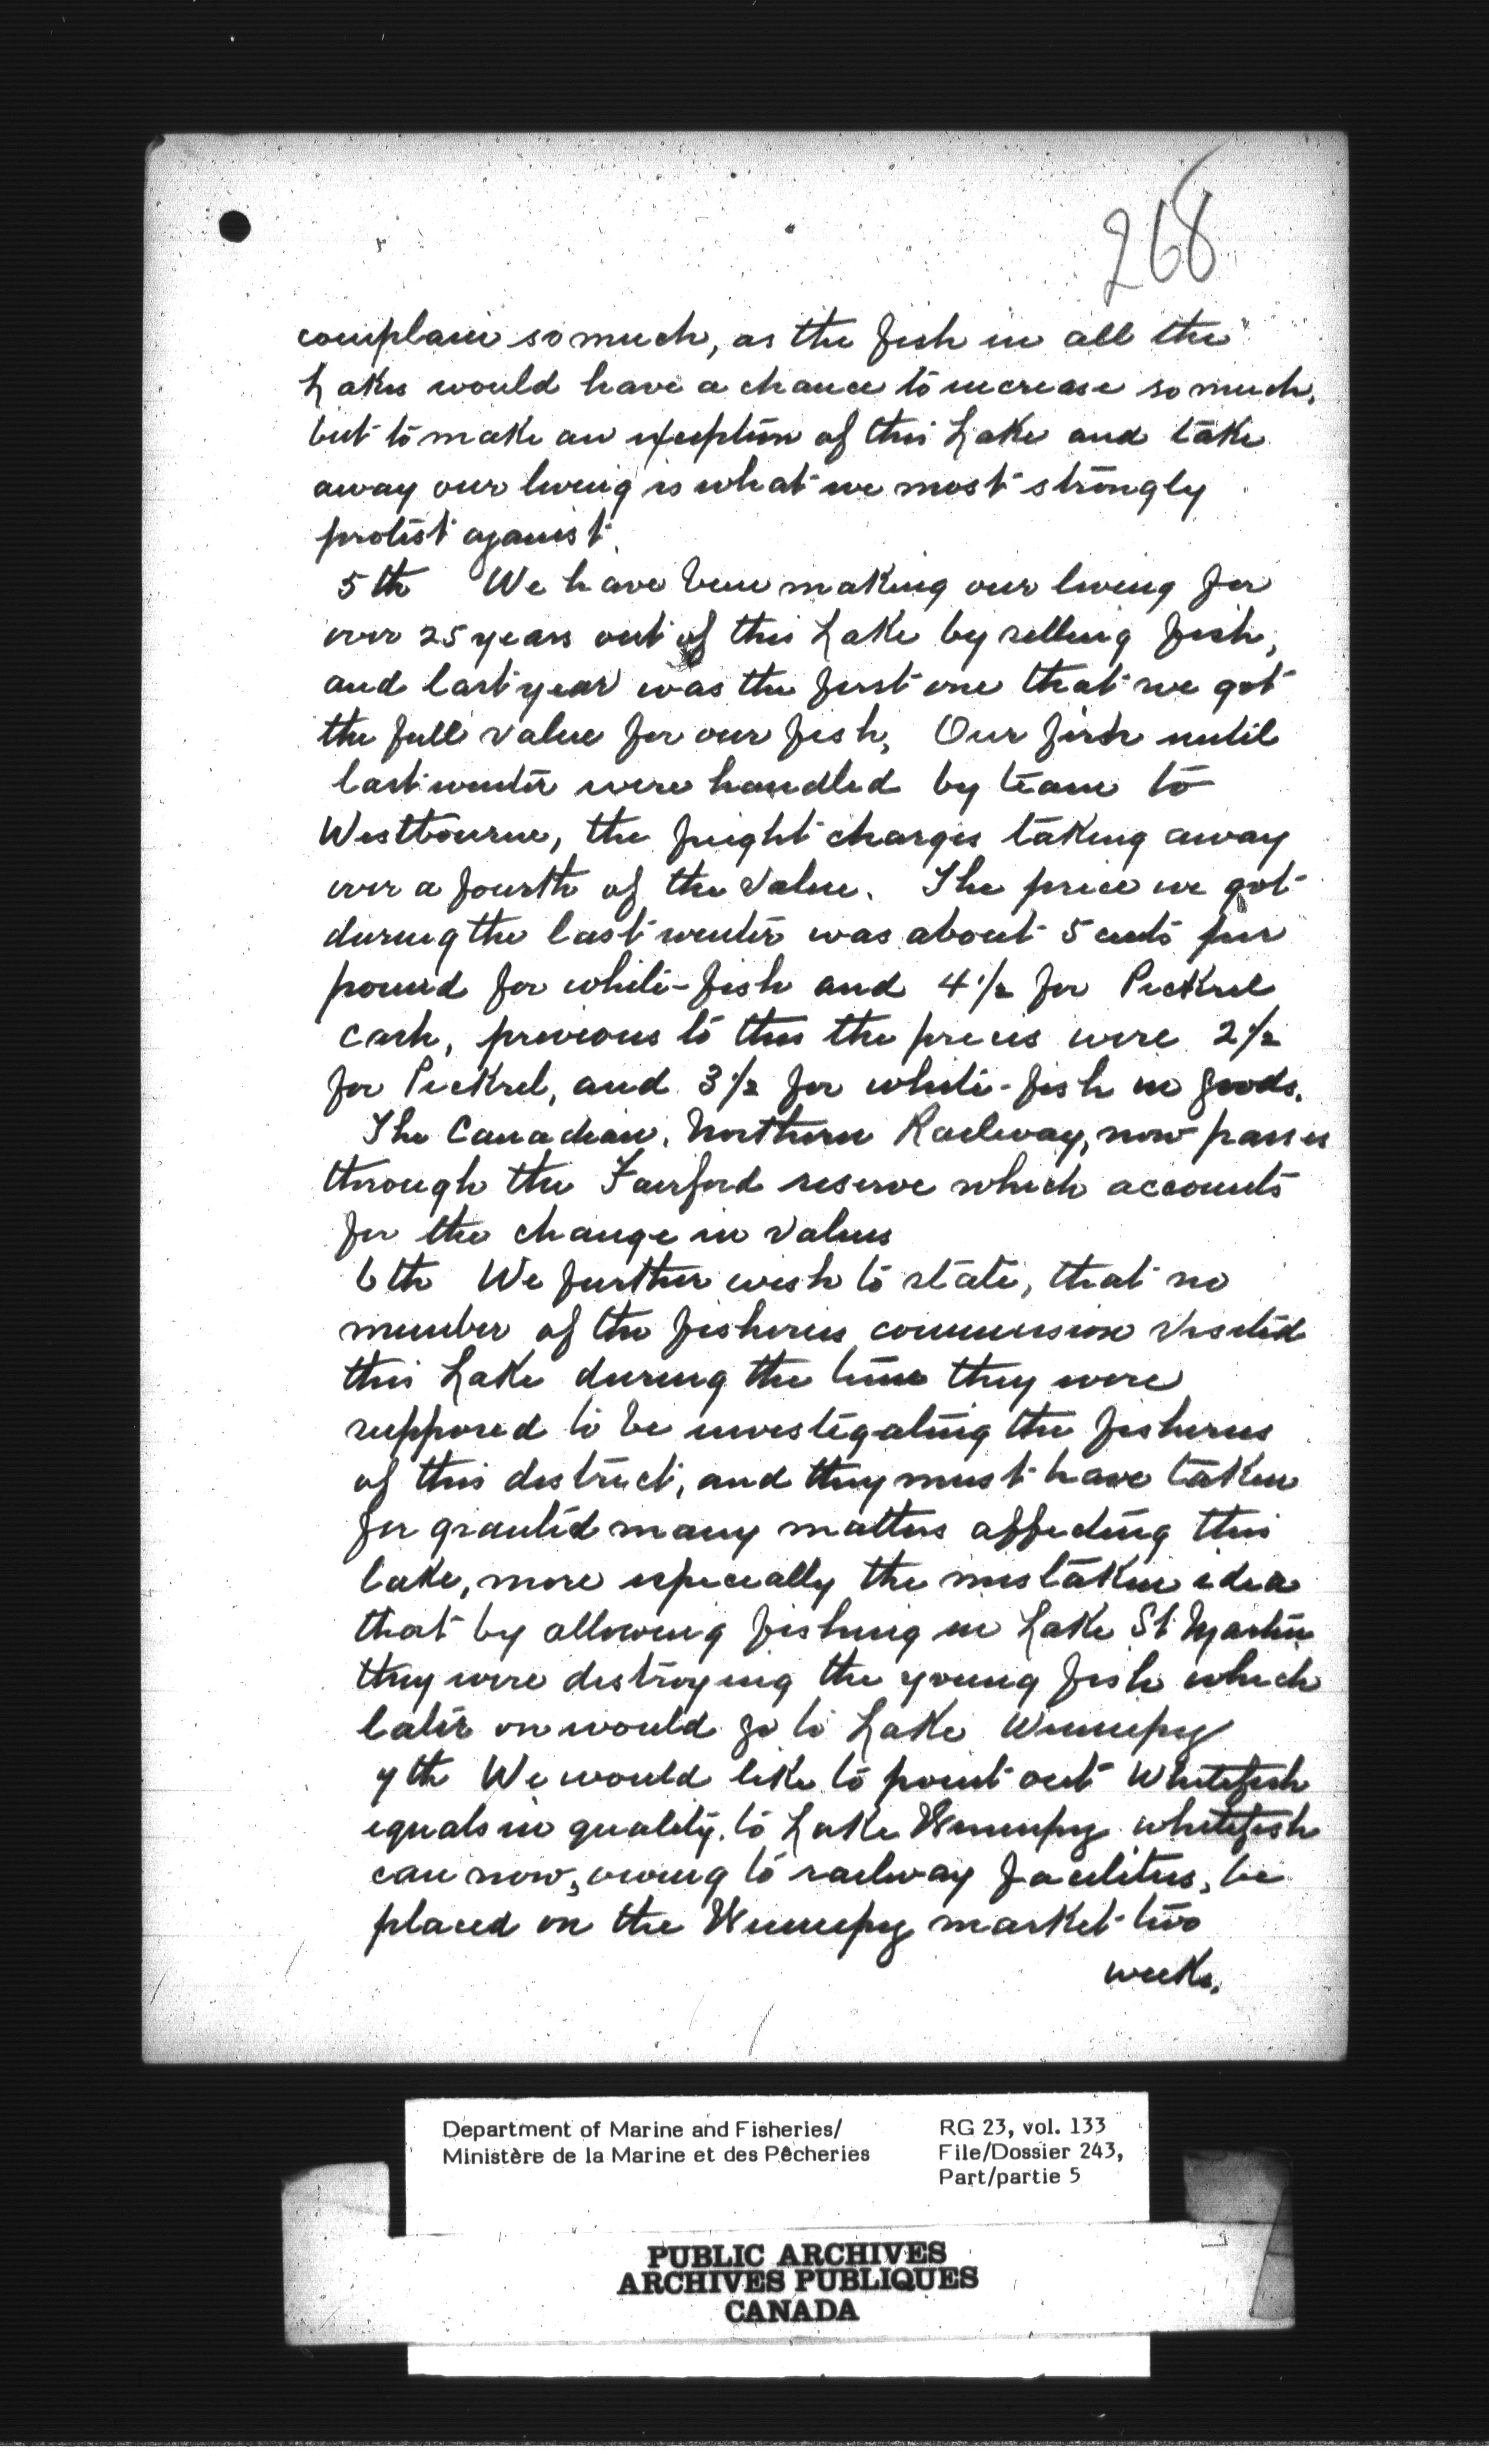 268
complain so much, as the fish in all the
Lakes would have a chance to increase so much,
but to make an exception of this Lake and take
away our living is what we most strongly
protest against.
5th We have been making our living for
over 25 years out of this Lake by selling fish,
and last year was the first one that we got
the full value for our fish, Our fish until
last winter were handled by team to
Westbourne, the freight charges taking away
over a fourth of the value. The price we got
during the last winter was about 5 cents per
pound for white-fish and 4 1/2 for Pickrel
cash, previous to this the prices were 2 1/2
for Pickrel, and 3 1/2 for white-fish in goods.
The Canadian, Northern Railway, now passes
through the Fairford reserve which accounts
for the change in values
6th We further wish to state, that no
member of the fisheries commission visited
this Lake during the time they were
supposed to be investigating the fisheries
of this district, and they must have taken
for granted many matters affecting this
lake, more especially the mistaken idea
that by allowing fishing in Lake St Martin
they were destroying the young fish which
later on would go to Lake Winnipeg
7th We would like to point out Whitefish
equals in quality, to Lake Winnipeg whitefish
can now, owing to railway facilities, be
placed on the Winnipeg market two
weeks.
Department of Marine and Fisheries/
Ministère de la Marine et des Pêcheries
RG 23, vol. 133
File/Dossier 243,
Part/partie 5
PUBLIC ARCHIVES
ARCHIVES PUBLIQUES
CANADA